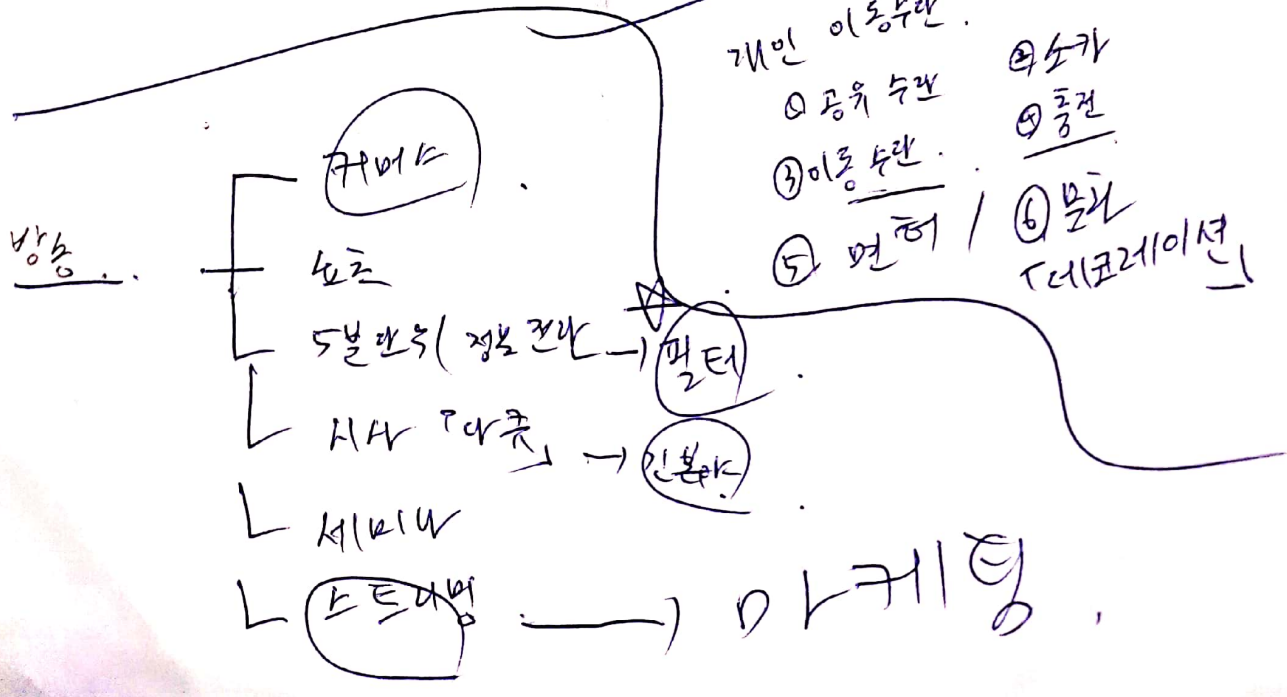 개인 이동수단.
① 공유 수단 ② 쇼카
③ 이동 수단. ④ 충전
⑤ 면허 / ⑥ 문화
「데코레이션」
방송..
커머스
쇼츠
5분 단위( 정보 전달 → 필터
시사 「다큐」 →
세미나
스트리밍 → 마케팅.